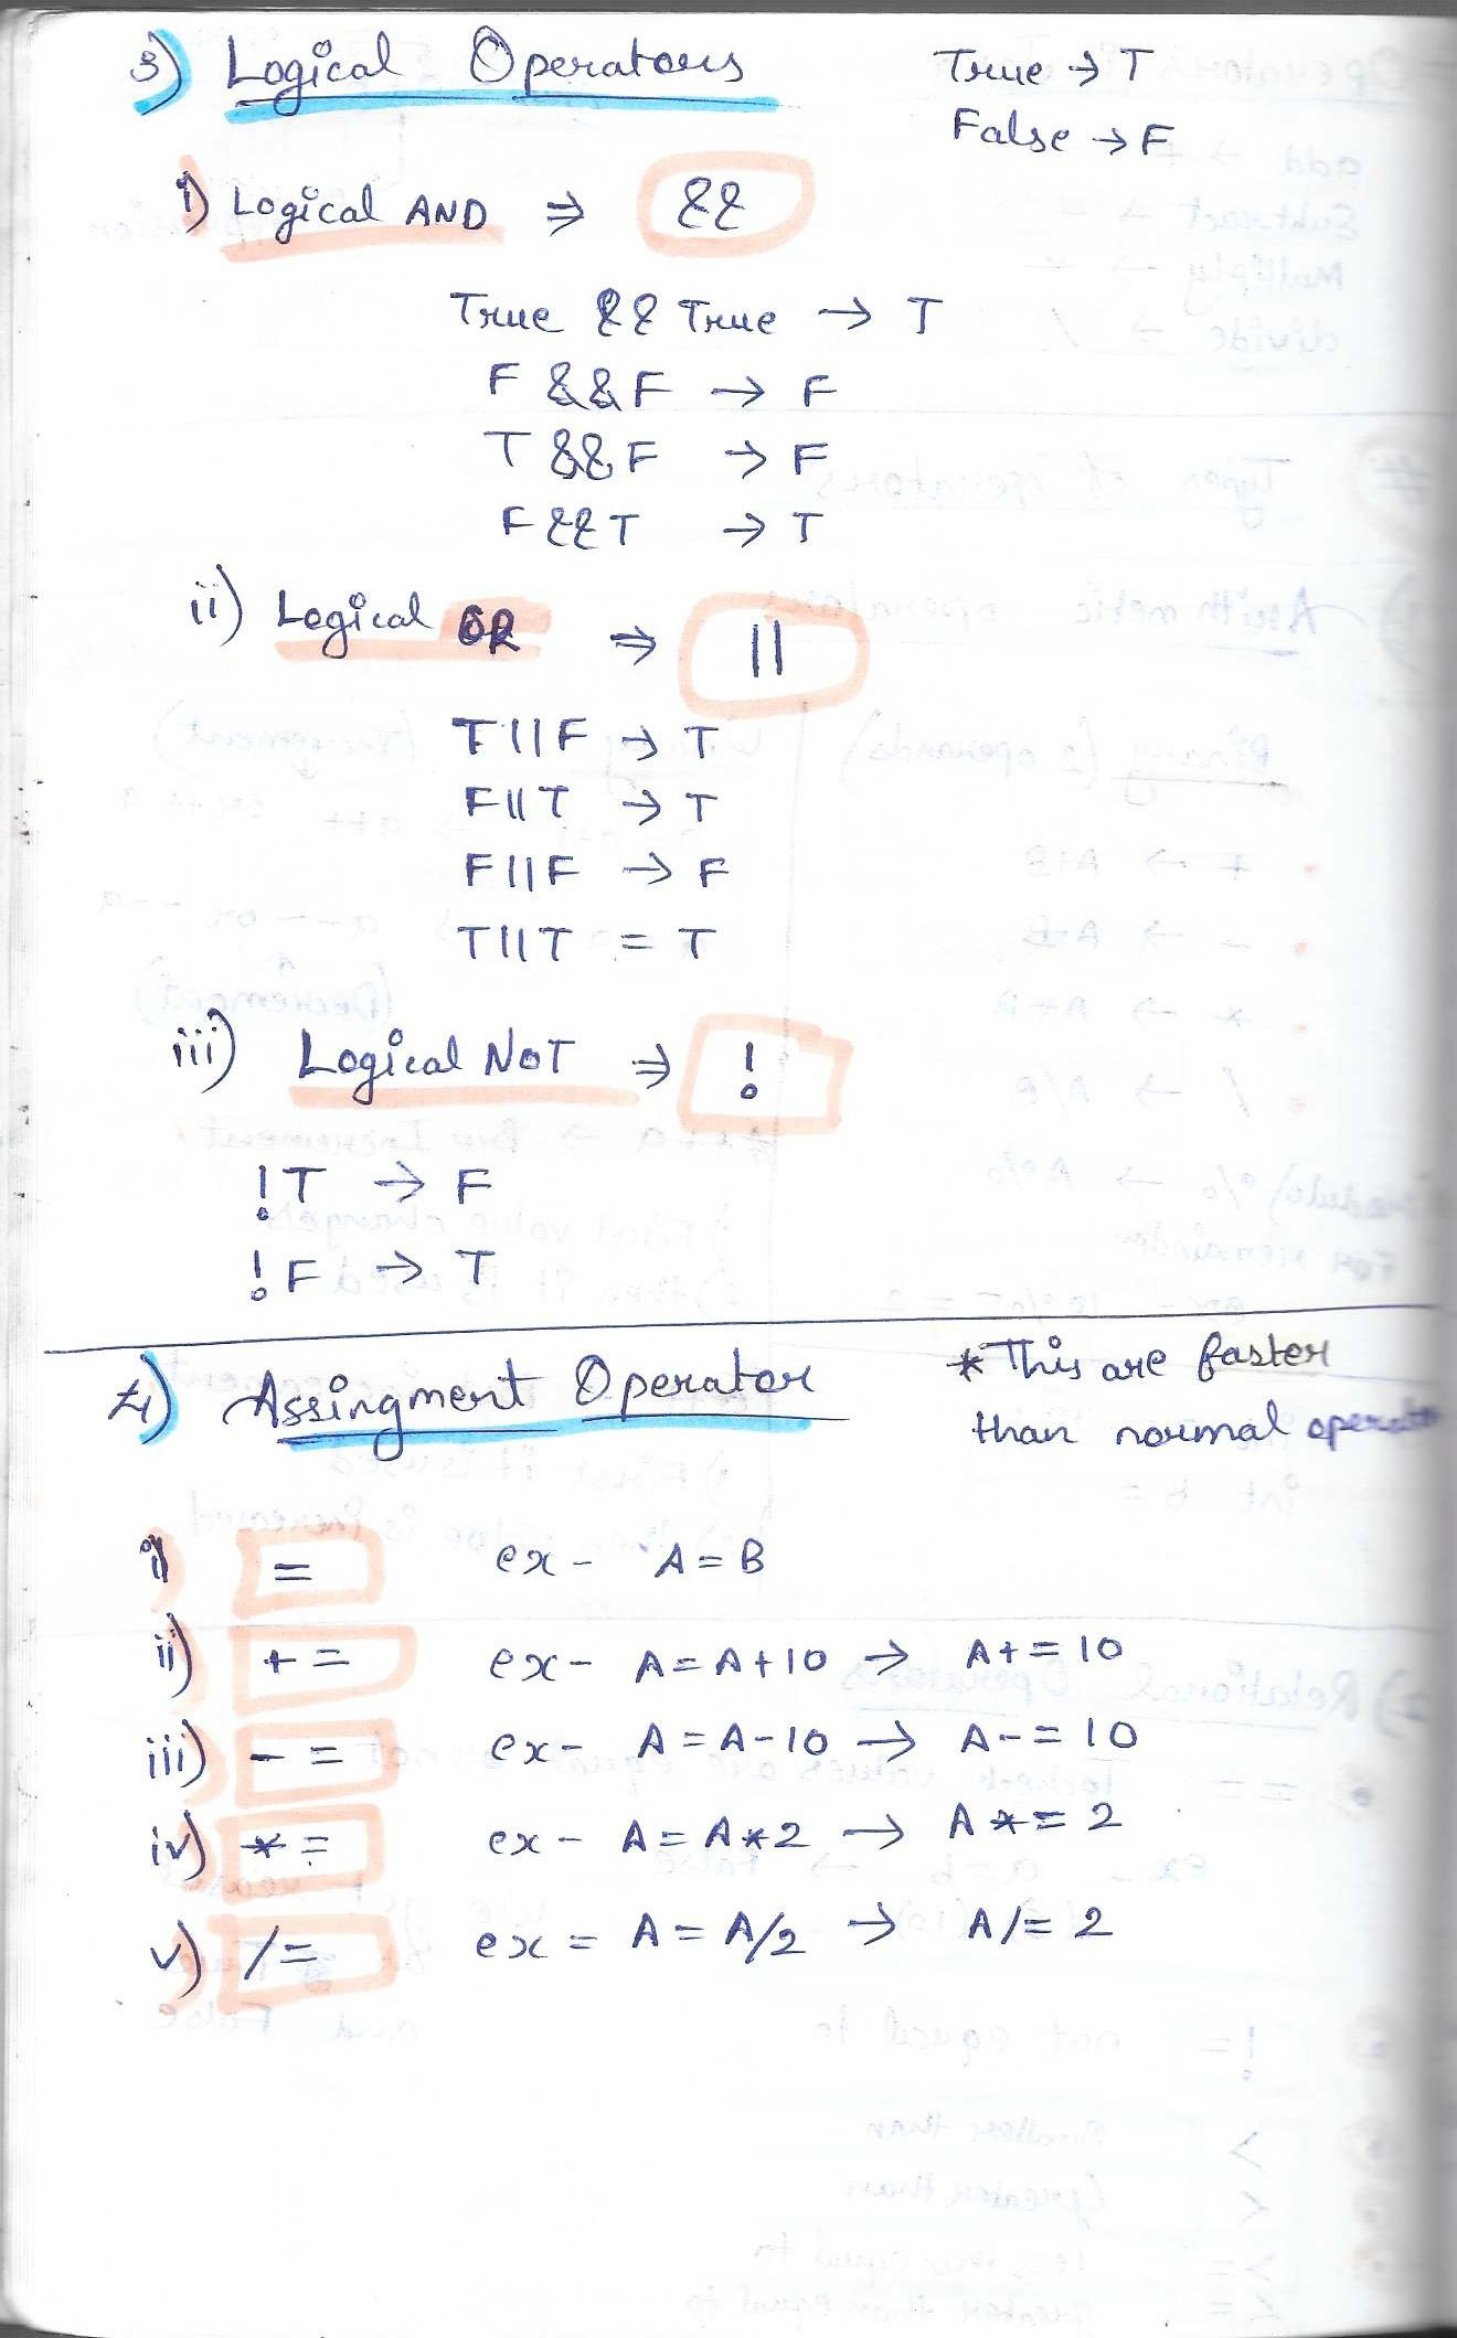 3) Logical Operators
True → T
False → F
i) Logical AND ⇒ &&
True && True → T
F && F → F
T && F → F
F && T → T
ii) Logical OR ⇒ ||
T || F → T
F || T → T
F || F → F
T || T = T
iii) Logical NOT ⇒ !
!T → F
!F → T
4) Assingment Operator
* This are faster
than normal
i) = ex - A = B
ii) += ex - A = A + 10 → A += 10
iii) -= ex - A = A - 10 → A -= 10
iv) *= ex - A = A * 2 → A *= 2
v) /= ex = A = A/2 → A /= 2